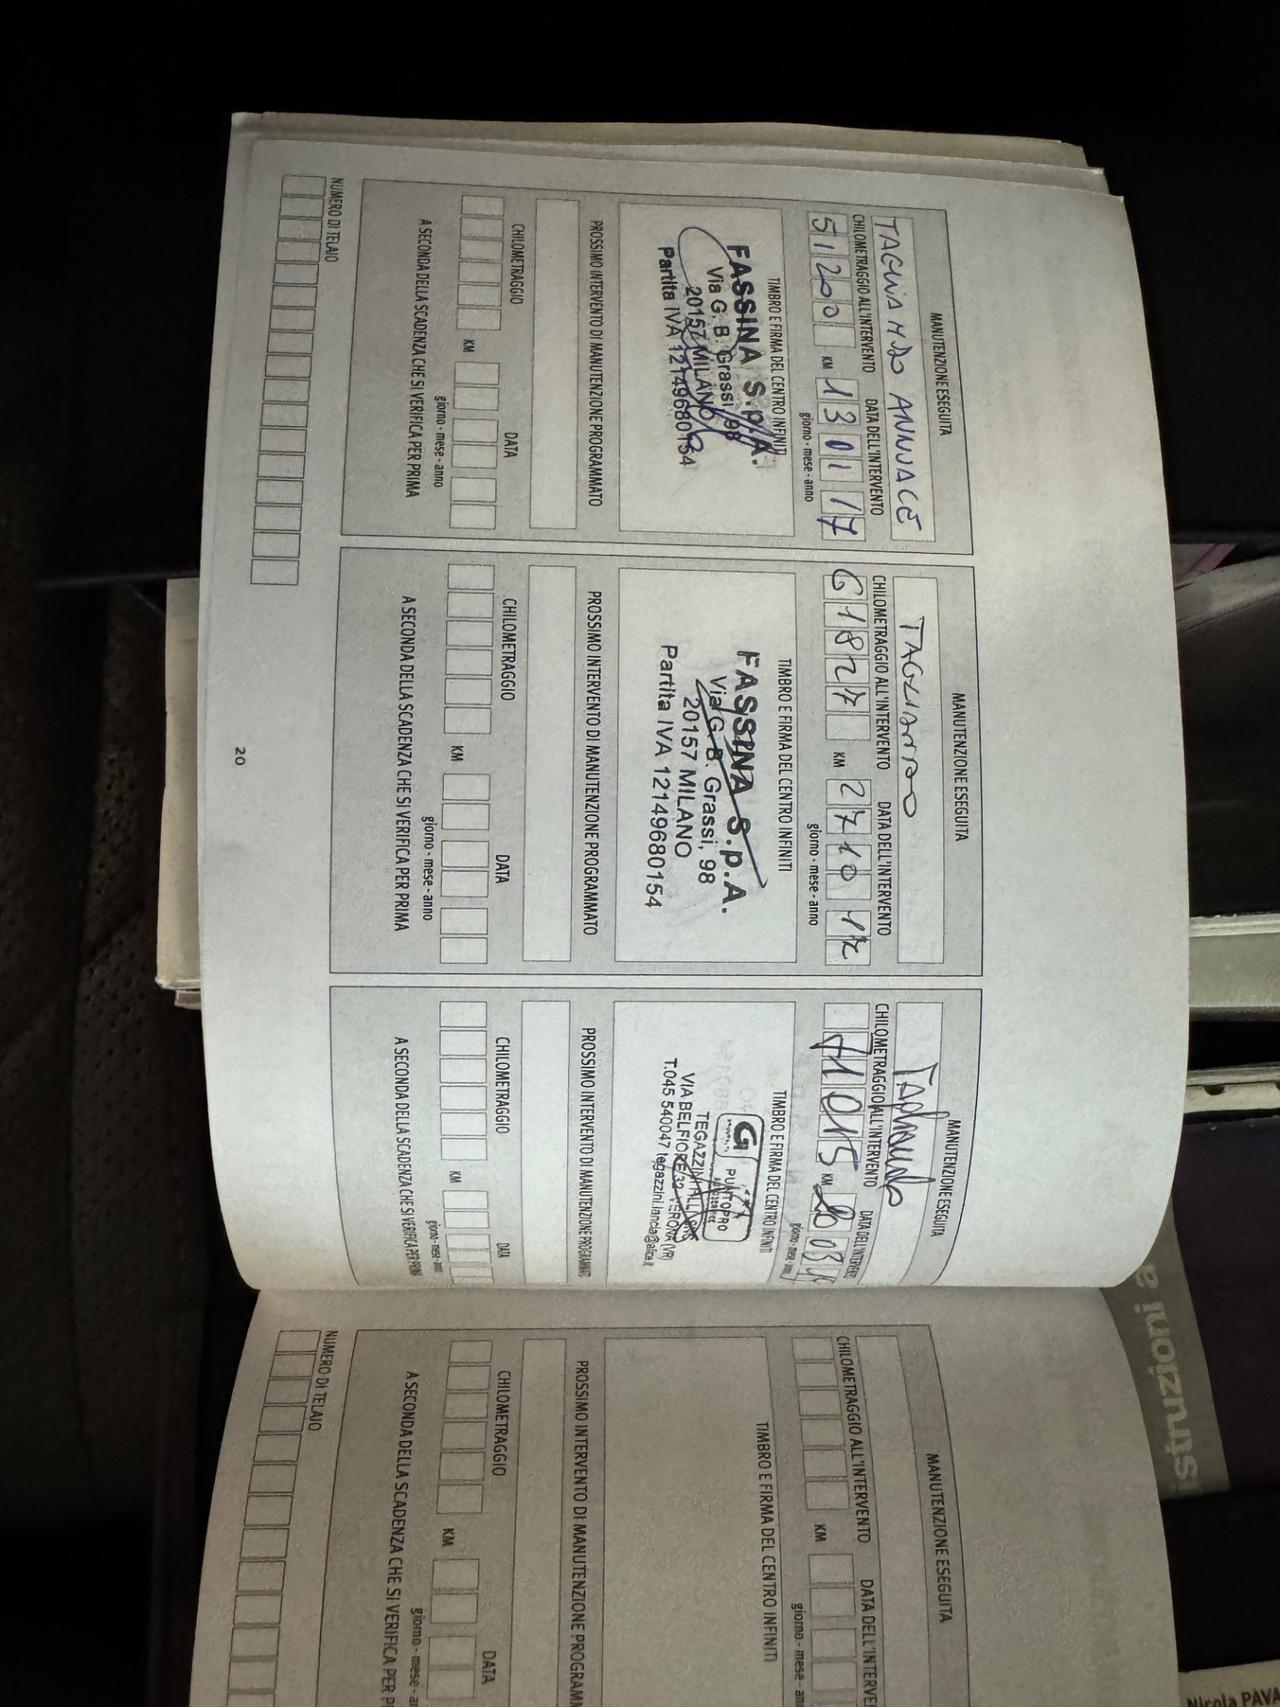 MANUTENZIONE ESEGUITA
TAGLIANDO ANNUALE
CHILOMETRAGGIO ALL'INTERVENTO DATA DELL'INTERVENTO
51200 KM 13 01 17
giorno - mese - anno
TIMBRO E FIRMA DEL CENTRO INFINITI
FASSINA S.p.A.
Via G. B. Grassi, 98
20157 MILANO
Partita IVA 12149680154
PROSSIMO INTERVENTO DI MANUTENZIONE PROGRAMMATO
CHILOMETRAGGIO DATA
KM
giorno - mese - anno
A SECONDA DELLA SCADENZA CHE SI VERIFICA PER PRIMA
NUMERO DI TELAIO
MANUTENZIONE ESEGUITA
TAGLIANDO
CHILOMETRAGGIO ALL'INTERVENTO DATA DELL'INTERVENTO
61827 KM 27 10 17
giorno - mese - anno
TIMBRO E FIRMA DEL CENTRO INFINITI
FASSINA S.p.A.
Via G. B. Grassi, 98
20157 MILANO
Partita IVA 12149680154
PROSSIMO INTERVENTO DI MANUTENZIONE PROGRAMMATO
CHILOMETRAGGIO DATA
KM
giorno - mese - anno
A SECONDA DELLA SCADENZA CHE SI VERIFICA PER PRIMA
MANUTENZIONE ESEGUITA
Tagliando
CHILOMETRAGGIO ALL'INTERVENTO DATA DELL'INTERVENTO
71015 KM 20 03
giorno - mese -
TIMBRO E FIRMA DEL CENTRO INFINITI
G PUNTOPRO
TEGAZZINI
VIA BELFIORE 32 VERONA (VR)
T.045 540047 tegazzini.lancia@alice.it
PROSSIMO INTERVENTO DI MANUTENZIONE PROGRAMMATO
CHILOMETRAGGIO DATA
KM
giorno - mese - anno
A SECONDA DELLA SCADENZA CHE SI VERIFICA PER PRIMA
20
MANUTENZIONE ESEGUITA
CHILOMETRAGGIO ALL'INTERVENTO DATA DELL'INTERVE
KM
giorno - mese - anno
TIMBRO E FIRMA DEL CENTRO INFINITI
PROSSIMO INTERVENTO DI MANUTENZIONE PROGRAMM
CHILOMETRAGGIO DATA
KM
giorno - mese - an
A SECONDA DELLA SCADENZA CHE SI VERIFICA PER P
NUMERO DI TELAIO
struzioni
Nicola PAVA